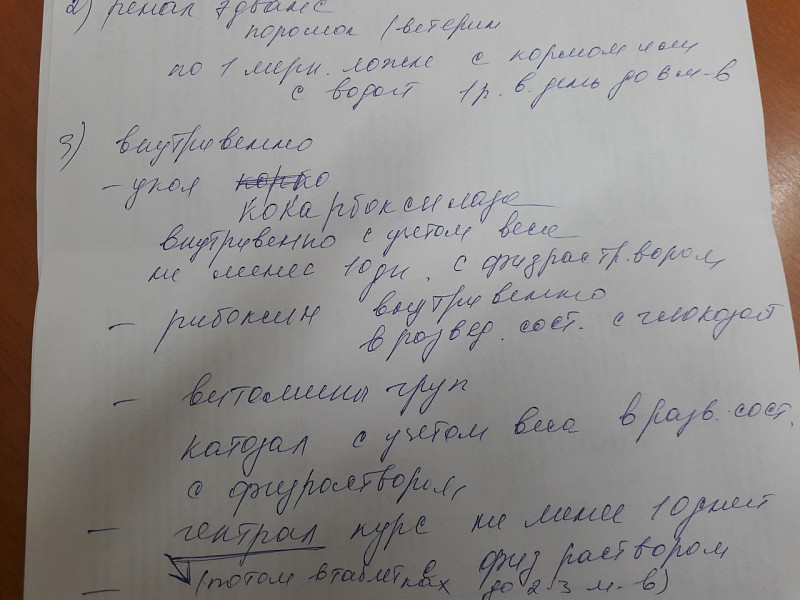 2) ренал эдванс
порошок /-ветерин
по 1 мерн. ложке с кормом или
с водой 1 р. в. день до 6 м-в
3) внутривенно
- укол
кокарбоксилаза
внутривенно с учетом веса
не менее 10 дн. с физраст.рвором
- рибоксин внутривенно
в развед. сост. с глюкозой
- витамины груп
катозал с учетом веса в разв. сост.
с физраствором
- гептрал курс не менее 10 дней
с физ раствором
(потом в таблетках до 2-3 м-в)
-